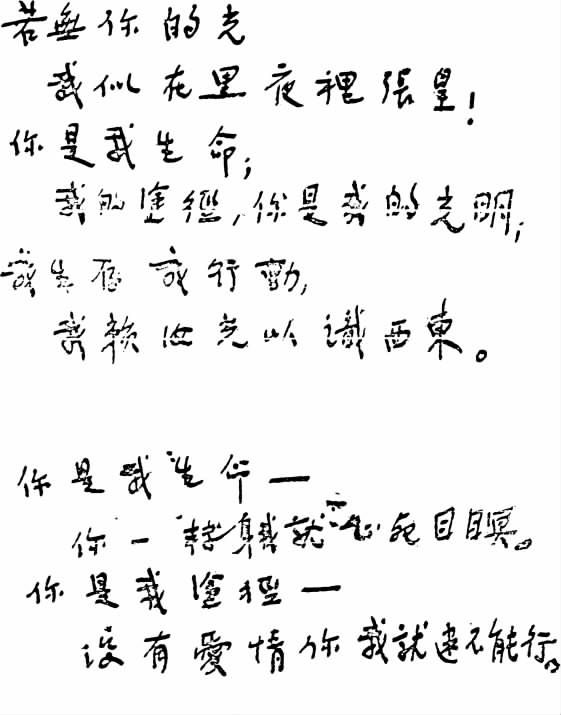 若無你的光
我似在黑夜裡張皇！
你是我生命；
我的途徑，你是我的光明；
我生存或行動，
我賴你光以識西東。
你是我生命—
你一轉身我就心死目瞑。
你是我途徑—
沒有愛情你我就遠不能行。